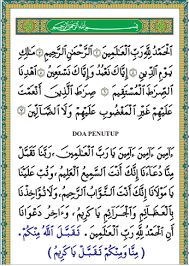 بِسْمِ اللهِ الرَّحْمٰنِ الرَّحِيْمِ
اَلْحَمْدُ لِلّٰهِ رَبِّ الْعَالَمِيْنَ الرَّحْمٰنِ الرَّحِيْمِ مَالِكِ
يَوْمِ الدِّيْنِ إِيَّاكَ نَعْبُدُ وَإِيَّاكَ نَسْتَعِيْنُ اِهْدِنَا
الصِّرَاطَ الْمُسْتَقِيْمَ صِرَاطَ الَّذِيْنَ أَنْعَمْتَ
عَلَيْهِمْ غَيْرِ الْمَغْضُوْبِ عَلَيْهِمْ وَلَا الضَّالِّيْنَ
DOA PENUTUP
ءَامِين ءَامِين ءَامِين يَا رَبَّ الْعَالَمِيْنَ، رَبَّنَا تَقَبَّلْ
مِنَّا دُعَاءَنَا إِنَّكَ أَنْتَ السَّمِيْعُ الْعَلِيْمُ، وَتُبْ عَلَيْنَا
يَا مَوْلَانَا إِنَّكَ أَنْتَ التَّوَّابُ الرَّحِيْمُ، وَلَا تُؤَاخِذْنَا
بِالْعَظَائِمِ وَالْجَرَائِمِ يَا كَرِيْمُ، وَءَاخِرُ دَعْوَانَا
أَنِ الْحَمْدُ لِلّٰهِ رَبِّ الْعَالَمِيْنَ. تَقَبَّلَ اللهُ مِنْكُمْ،
( مِنَّا وَمِنْكُمْ تَقَبَّلْ يَا كَرِيْمُ )